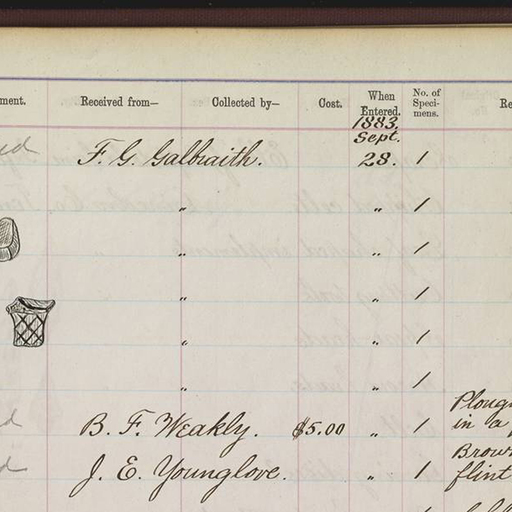 ment. Received from— Collected by— Cost. When Entered. No. of Speci- mens. Re
1883.
Sept.
F. G. Galbraith. 28. 1
„ „ 1
„ „ 1
„ „ 1
„ „ 1
„ „ 1
B. F. Weakly. $5.00 „ 1 Plough
in a
J. E. Younglove. „ 1 Brow
flint